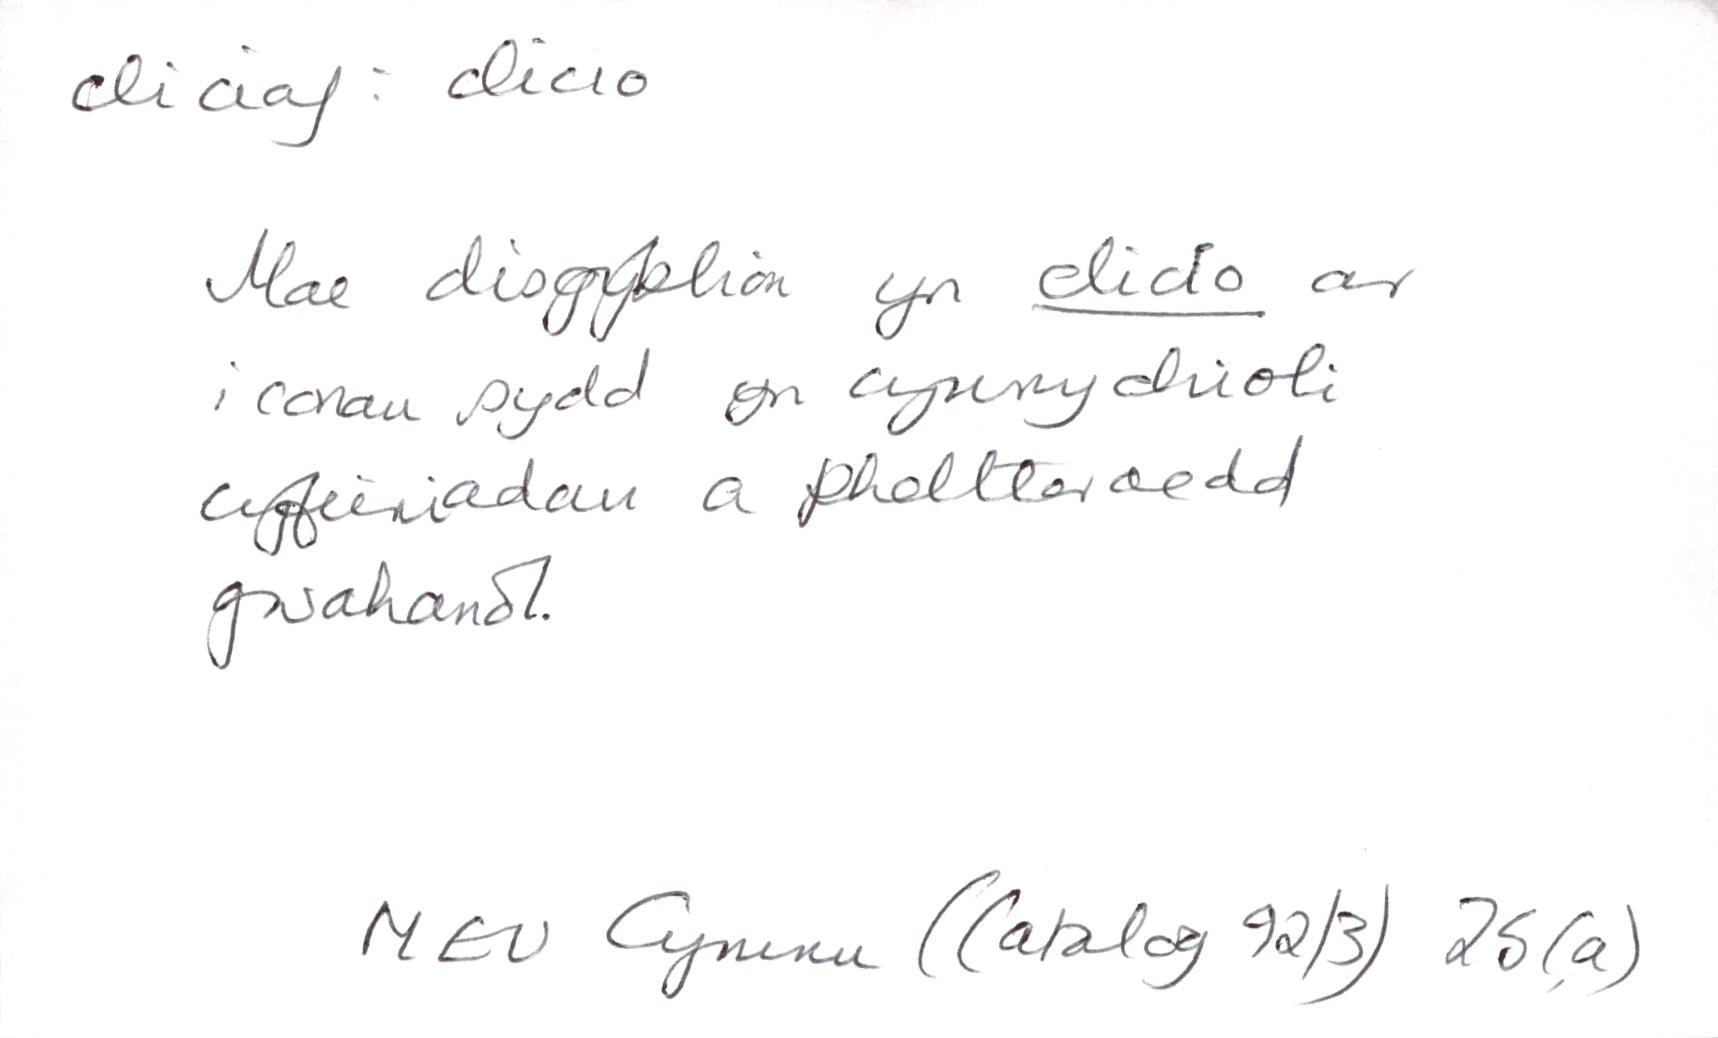 cliciaf: clicio
Mae disgyblion yn clicio ar
iconau sydd yn cynrychioli
cyfeiriadau a phellteroedd
gwahanol.
MEU Cymru (Catalog 92/3) 25(a)